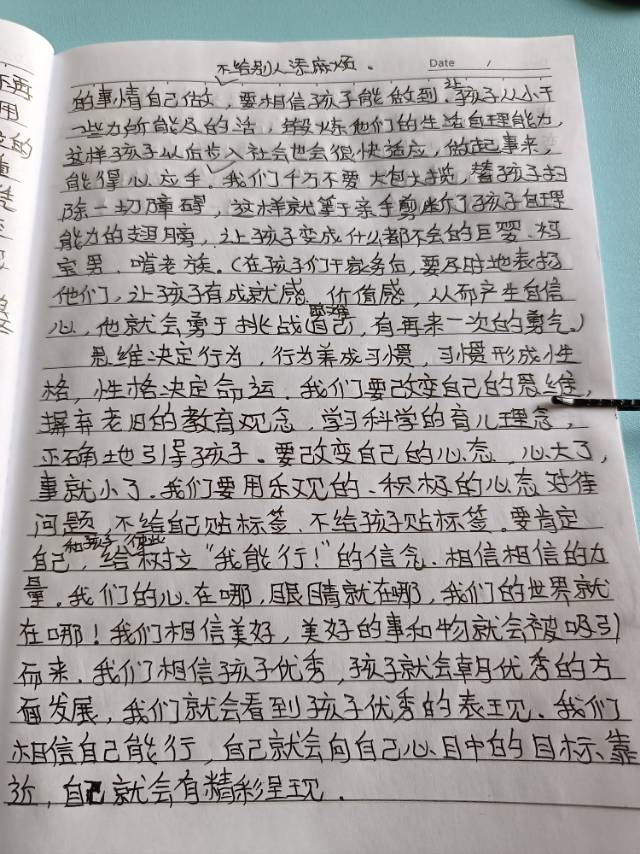 不给别人添麻烦。
Date /
的事情自己做,要相信孩子能做到。让孩子从小干
一些力所能及的活,锻炼他们的生活自理能力,
这样孩子以后步入社会也会很快适应,做起事来,
能得心应手。我们千万不要大包大揽,替孩子扫
除一切障碍,这样就等于亲手剪断了孩子自理
能力的翅膀,让孩子变成什么都不会的巨婴、妈
宝男、啃老族。(在孩子们干家务后,要及时地表扬
他们,让孩子有成就感、价值感,从而产生自信
心,他就会勇于挑战自己,有再来一次的勇气。)
思维决定行为,行为养成习惯,习惯形成性
格,性格决定命运。我们要改变自己的思维,
摒弃老旧的教育观念,学习科学的育儿理念,
正确地引导孩子。要改变自己的心态,心大了,
事就小了。我们要用乐观的、积极的心态对待
问题,不给自己贴标签、不给孩子贴标签。要肯定
自己和孩子,给树立“我能行!”的信念。相信相信的力
量。我们的心在哪,眼睛就在哪,我们的世界就
在哪!我们相信美好,美好的事和物就会被吸引
而来。我们相信孩子优秀,孩子就会朝优秀的方
面发展,我们就会看到孩子优秀的表现。我们
相信自己能行,自己就会向自己心目中的目标靠
近,自己就会有精彩呈现。